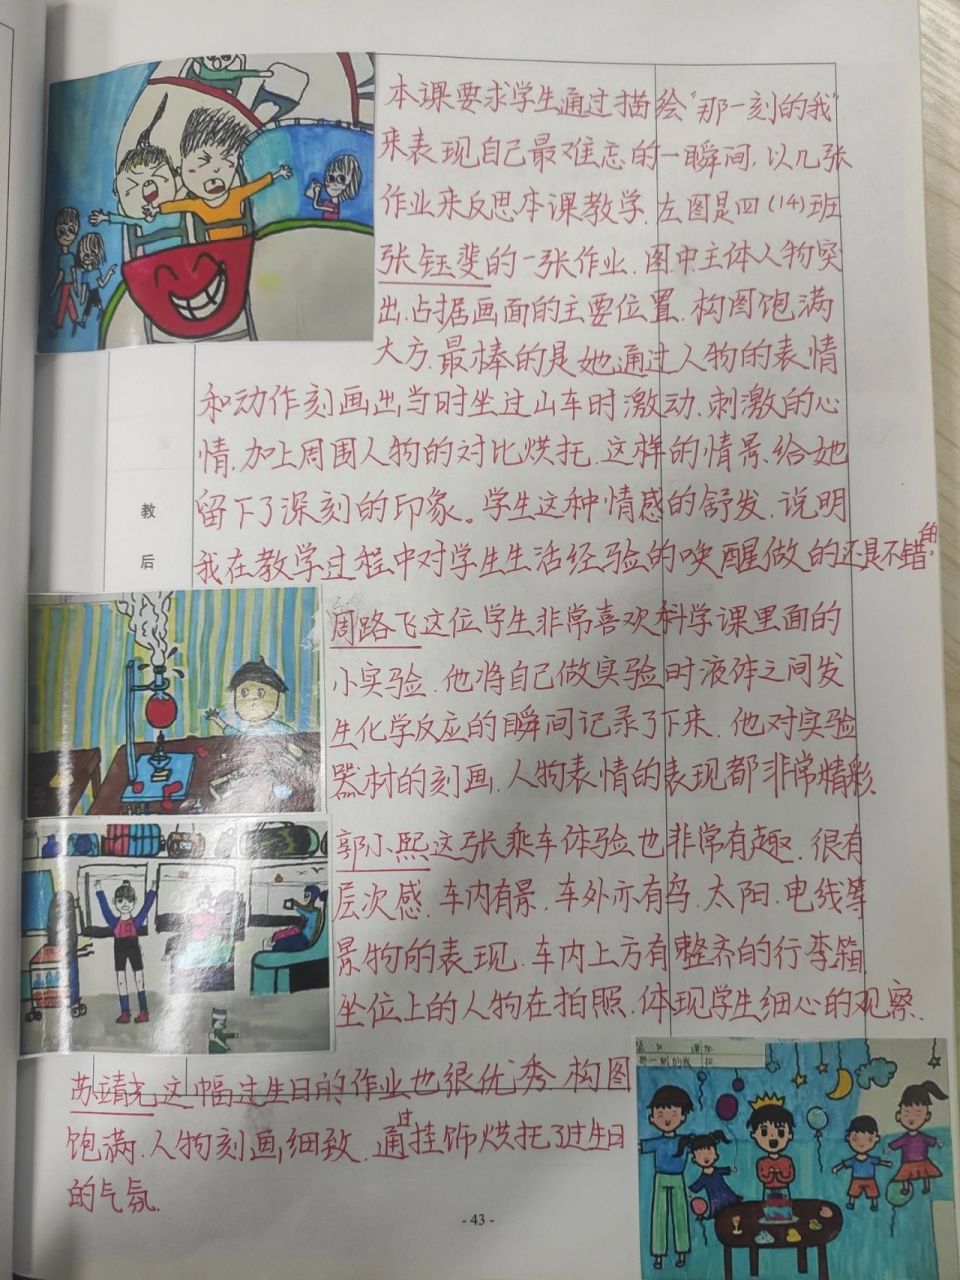 本课要求学生通过描绘“那一刻的我”
来表现自己最难忘的一瞬间，以几张
作业来反思本课教学．左图是四（14）班
张钰斐的一张作业．图中主体人物突
出．占据画面的主要位置．构图饱满
大方．最棒的是她通过人物的表情
和动作刻画出当时坐过山车时激动．刺激的心
情．加上周围人物的对比烘托．这样的情景给她
留下了深刻的印象。学生这种情感的舒发．说明
教
后
我在教学过程中对学生生活经验的唤醒做的还是不错的．
周路飞这位学生非常喜欢科学课里面的
小实验．他将自己做实验时液体之间发
生化学反应的瞬间记录了下来．他对实验
器材的刻画．人物表情的表现都非常精彩．
郭小熙这张乘车体验也非常有趣．很有
层次感．车内有景．车外亦有鸟．太阳．电线等
景物的表现．车内上方有整齐的行李箱
坐位上的人物在拍照．体现学生细心的观察．
苏靖尧这幅过生日的作业也很优秀 构图
饱满．人物刻画细致．通过挂饰烘托了过生日
的气氛．
那一刻的我
- 43 -